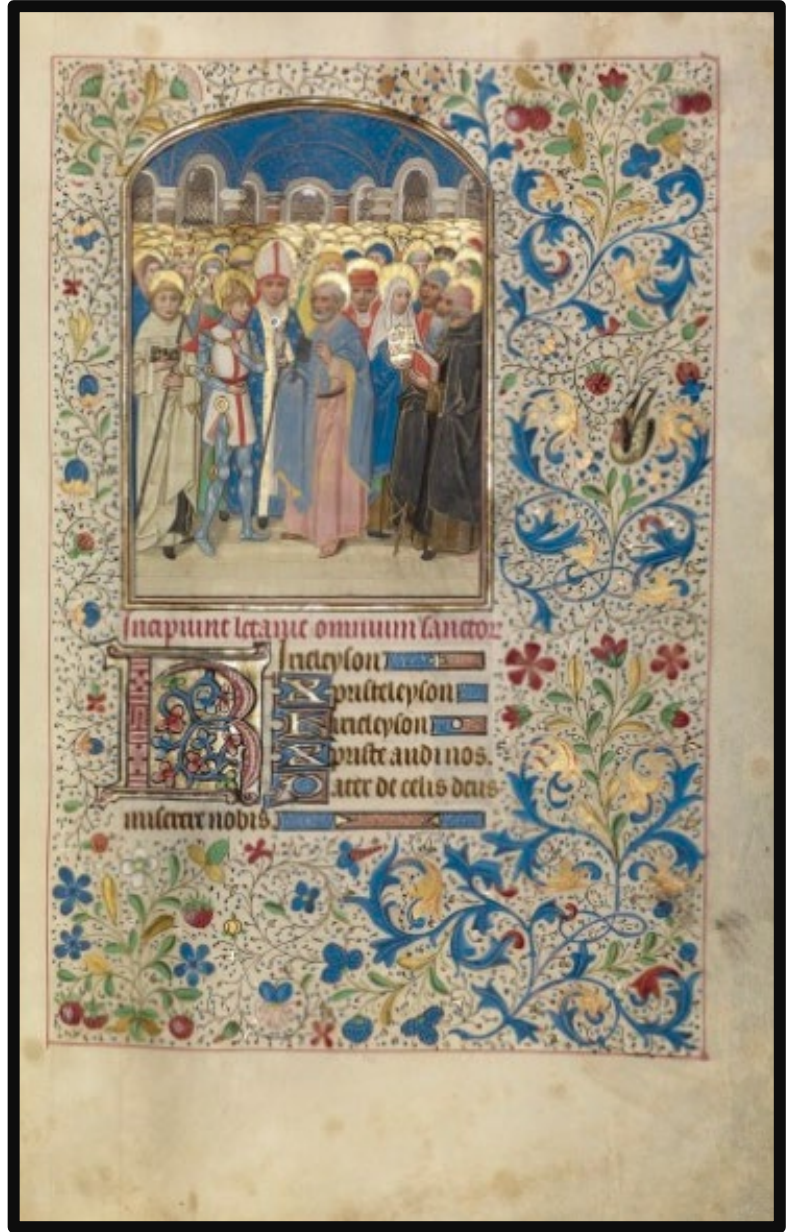 Incipiunt letanie omnium sanctor
Kirieleyson
Xpristeleyson
Kirieleyson
Xpriste audi nos.
Pater de celis deus
miserere nobis.